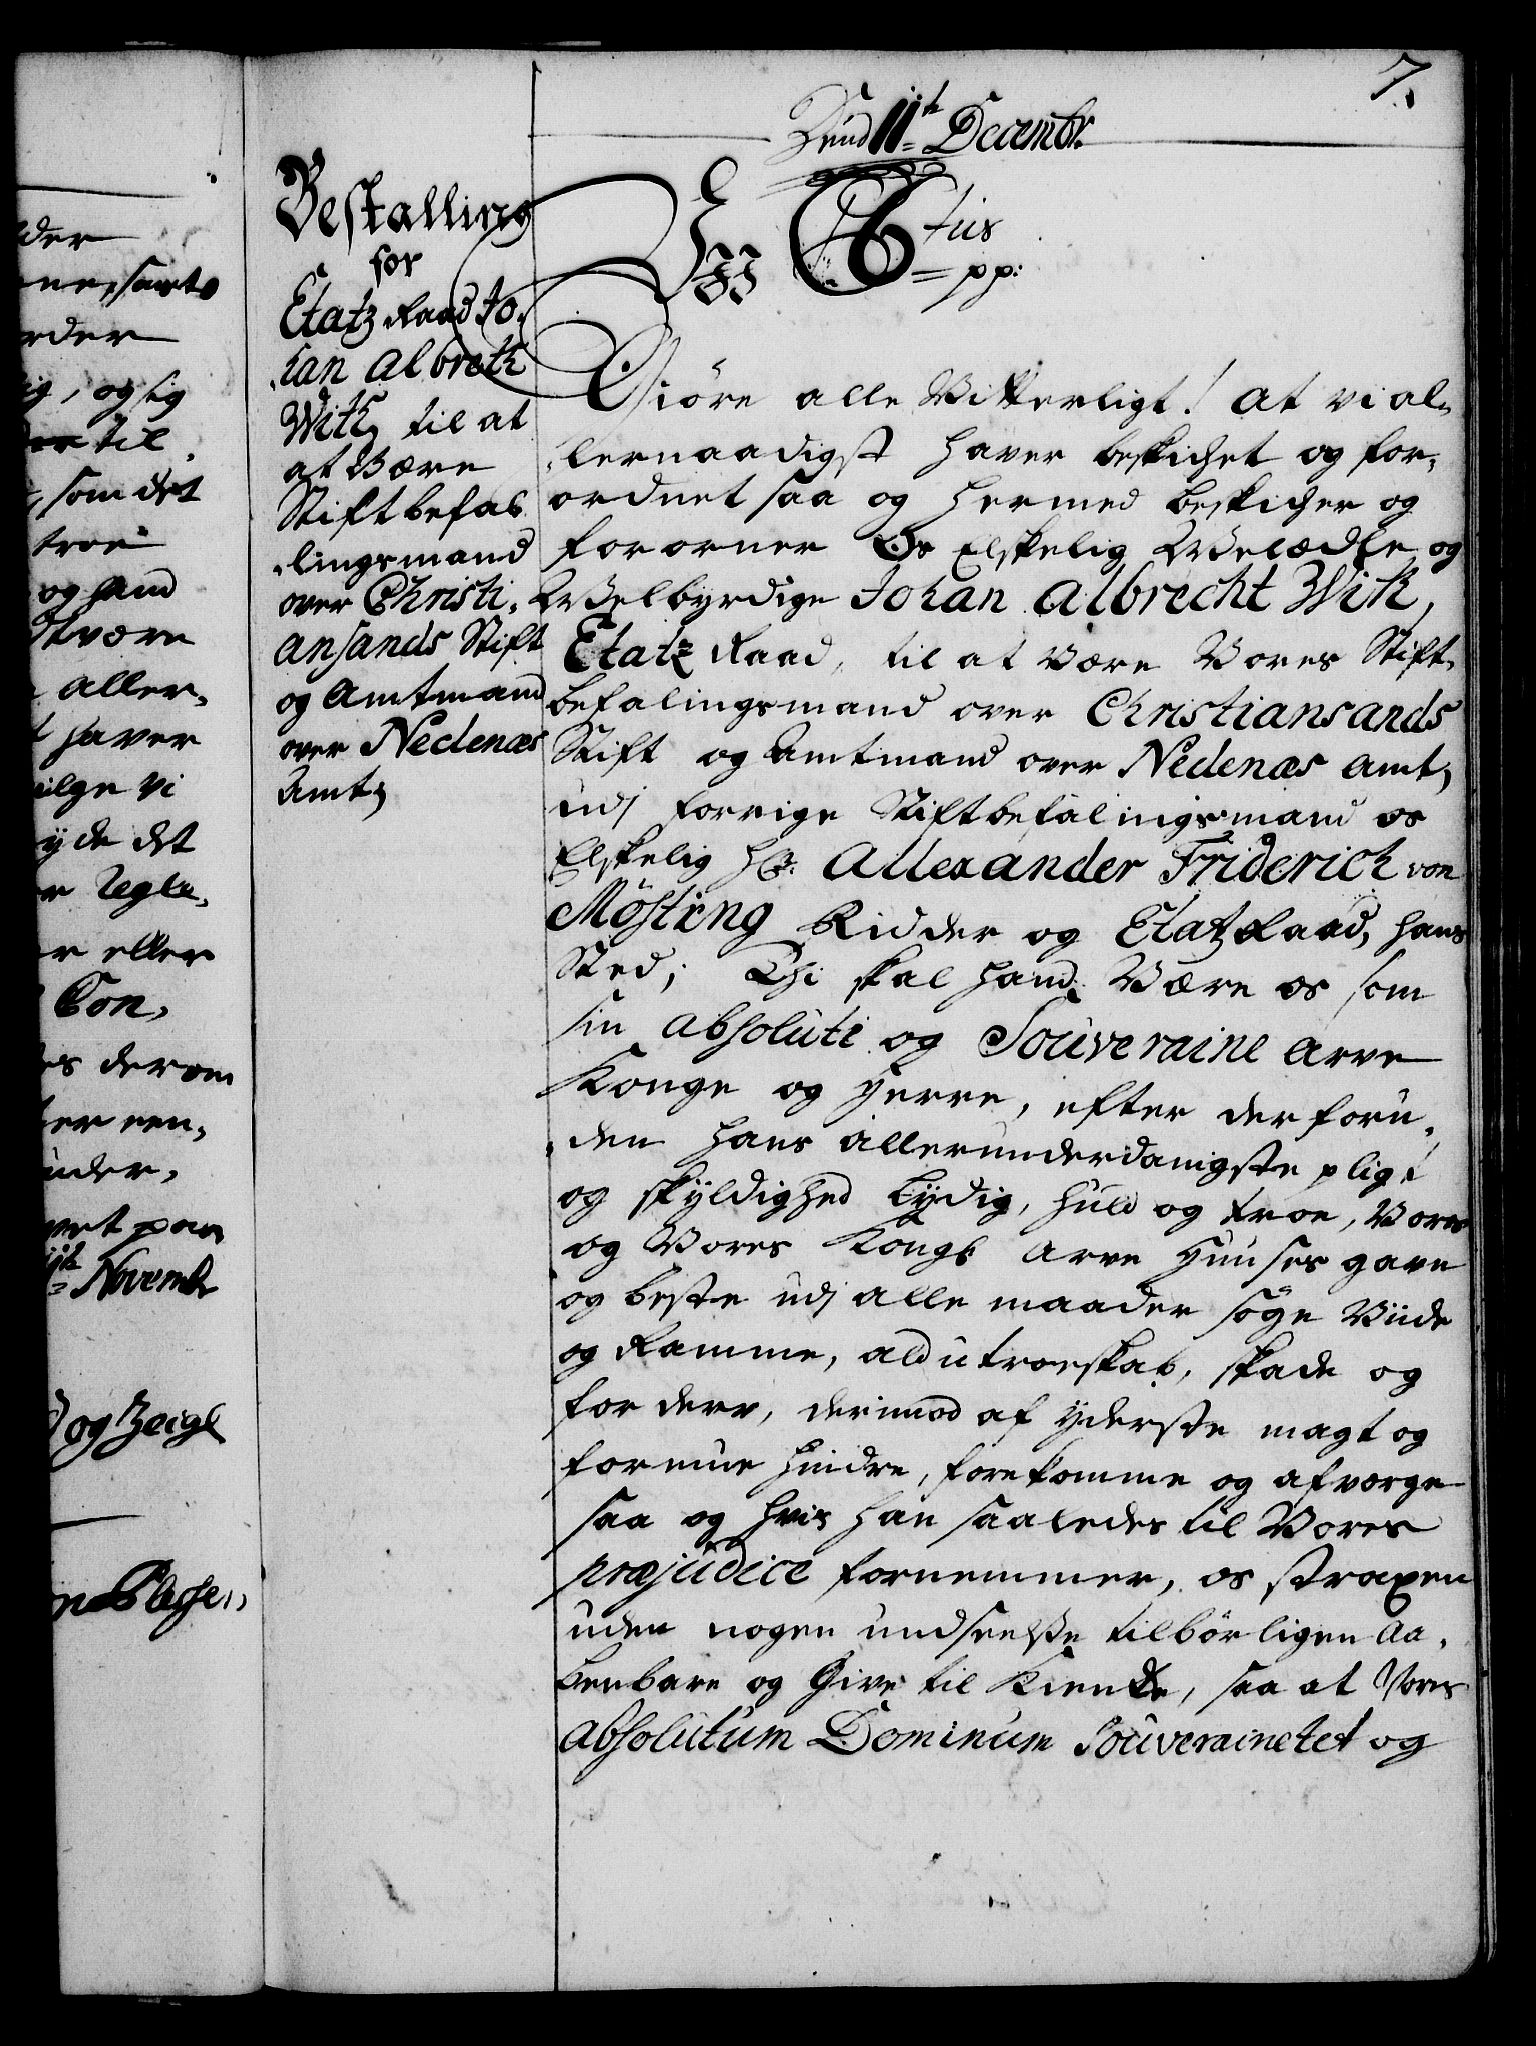 7.
Dend 11te Decembr.
Bestalling
for
Etatz Raad Jo,
han Albreth
With, til at
at Være
Stiftbefal
lingsmand
over Christi,
ansands Stift
og Amtmand
over Nedenæs
Amt,
Wi C6tus
pp:
Giöre alle Vitterligt! at vi al,
lernaadigst haver beskichet og for,
ordnet saa og hermed beskicher og
forordner Os Elskelig Welædle og
Welbyrdige Johan Albrecht With,
Etatz Raad, til at være Vores Stift,
befalingsmand over Christiansands
Stift og Amtmand over Nedenæs Amt,
udj forrige Stiftbefalingsmand os
Elskelig Hr. Allexander Friderich von
Møsting Ridder og Etatz Raad, hans
Sted; Thi skal hand Være os som
sin absolute og Souveraine Arve
Konge og Herre, efter derforu,
den hans allerunderdanigste pligt
og skyldighed Lydig, huld og troe, Vores
og Vores Kongl. Arve Huuses gavn
og beste udj alle maader söge Viide
og Ramme, ald utroeskab, skade og
forderv, derimod af yderste magt og
formue hindre, forekomme og afverge
saa og hvis han saaledes til Vores
præjudice fornemmer, os straxen
uden nogen undseelse tilbörligen Aa,
benbare og Give til Kiende, saa at Vores
absolutum Dominum Souverainetet og
der
ne, samt
rder
ig, og sig
til
, som det
troe
og hand
være
aller,
haver
ilge vi
yde det
r Regle,
r eller
Con,
es derom
ter een,
under,
vet paa
Novembr
og Zeigl